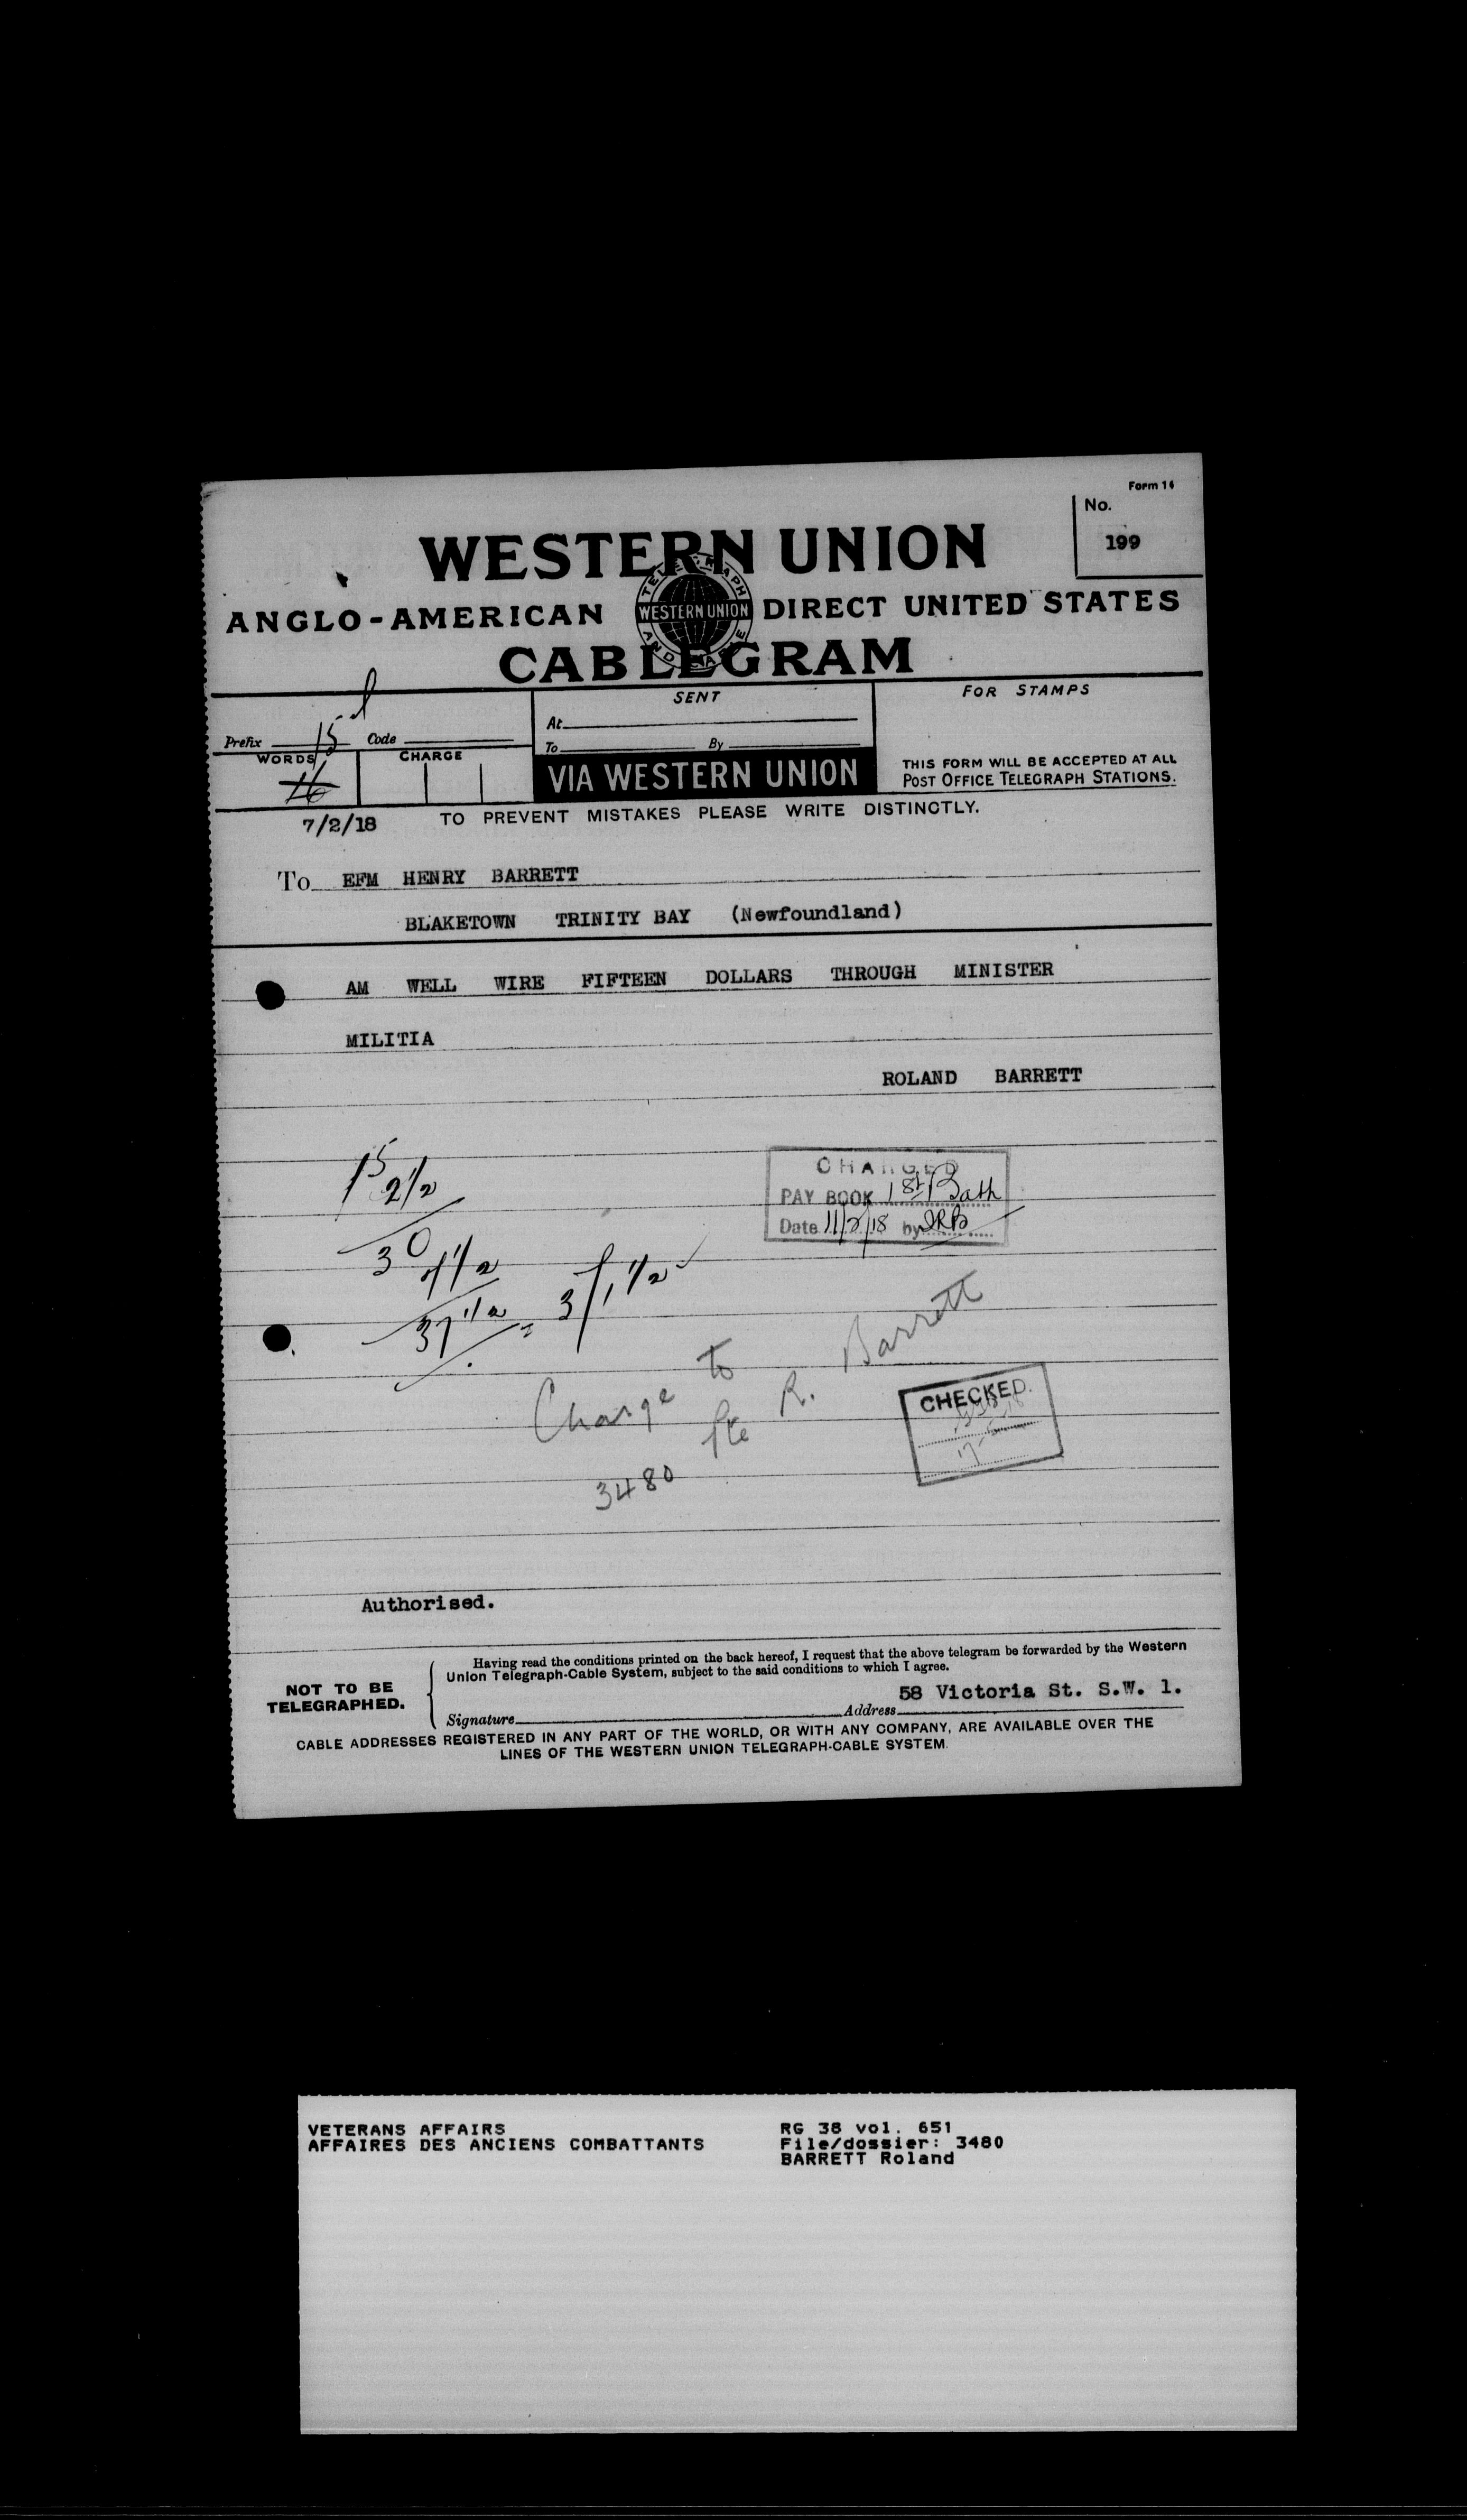 Form 14
No.
199
WESTERN UNION
TELEGRAPH AND CABLE
WESTERN UNION
ANGLO-AMERICAN DIRECT UNITED STATES
CABLEGRAM
Prefix 15 Code
SENT
At
To By
FOR STAMPS
WORDS CHARGE
16
VIA WESTERN UNION
THIS FORM WILL BE ACCEPTED AT ALL
POST OFFICE TELEGRAPH STATIONS.
7/2/18 TO PREVENT MISTAKES PLEASE WRITE DISTINCTLY.
To EFM HENRY BARRETT
BLAKETOWN TRINITY BAY (Newfoundland)
AM WELL WIRE FIFTEEN DOLLARS THROUGH MINISTER
MILITIA
ROLAND BARRETT
15
2 1/2
30
7 1/2
37 1/2 = 3/1 1/2
CHARGED
PAY BOOK 1st Bath
Date 11/2/18 by
Charge to
3480 Pte R. Barrett
CHECKED.
Authorised.
NOT TO BE
TELEGRAPHED.
Having read the conditions printed on the back hereof, I request that the above telegram be forwarded by the Western
Union Telegraph-Cable System, subject to the said conditions to which I agree.
Signature Address 58 Victoria St. S.W. 1.
CABLE ADDRESSES REGISTERED IN ANY PART OF THE WORLD, OR WITH ANY COMPANY, ARE AVAILABLE OVER THE
LINES OF THE WESTERN UNION TELEGRAPH-CABLE SYSTEM.
VETERANS AFFAIRS
AFFAIRES DES ANCIENS COMBATTANTS
RG 38 vol. 651
File/dossier: 3480
BARRETT Roland